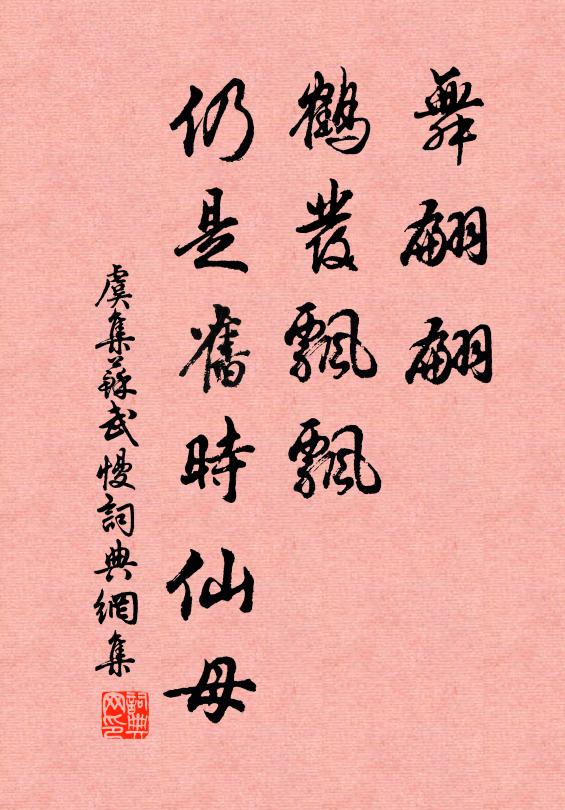 舞翩翩
鶴發飄飄
仍是舊時仙母
虞集蘇武慢詞典網集
詞典网印